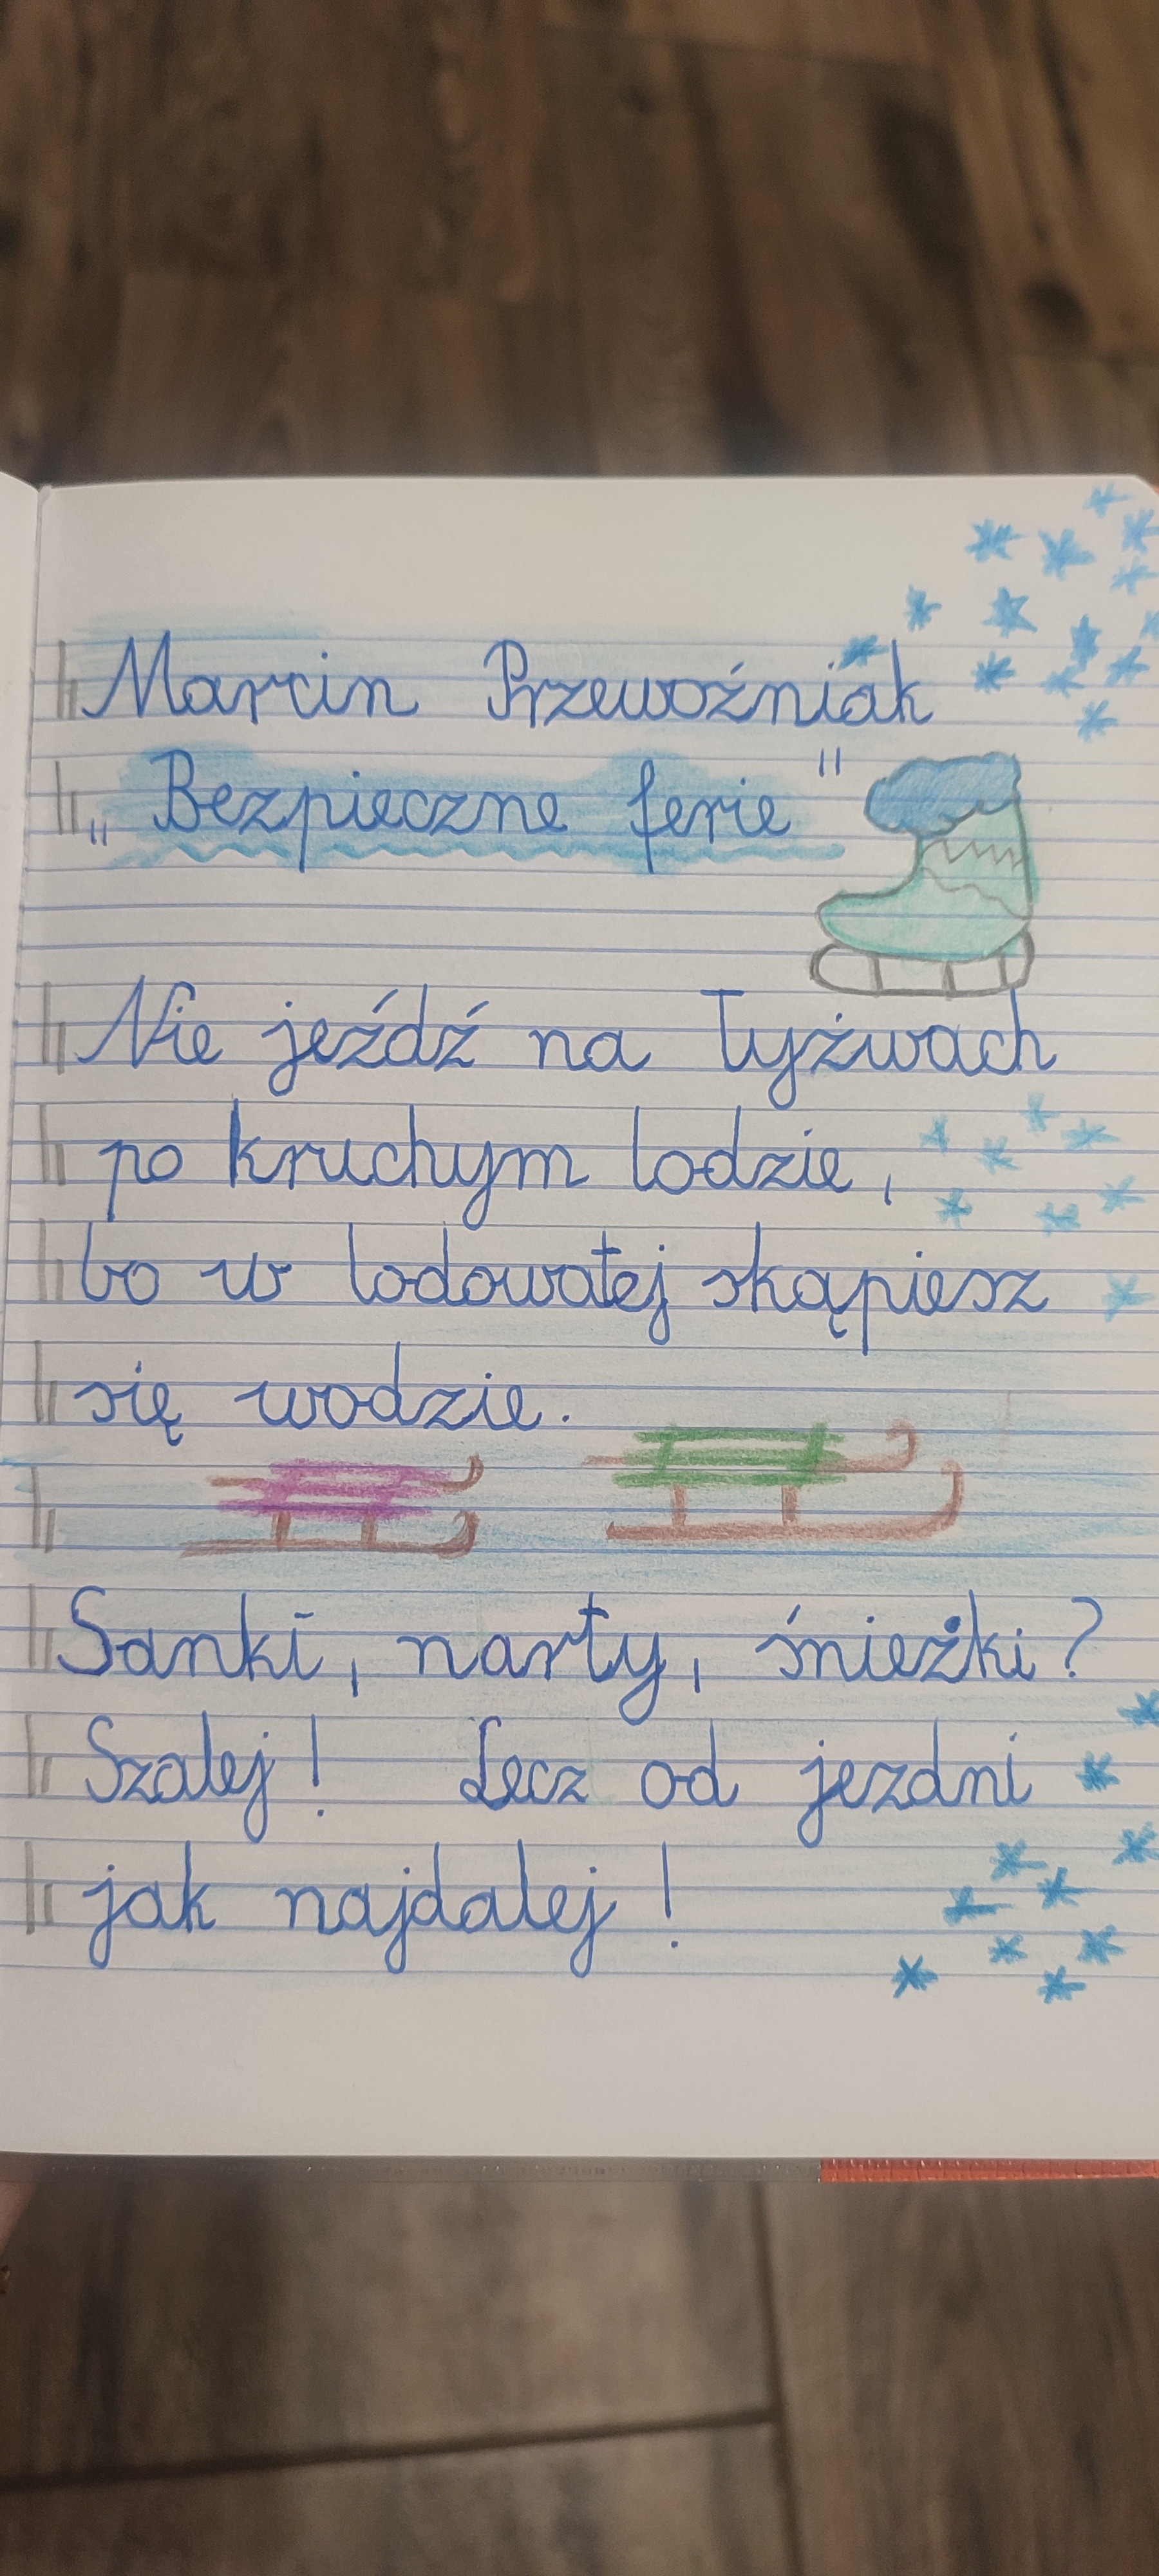 Marcin Przewoźniak
„Bezpieczne ferie"
Nie jeźdź na łyżwach
po kruchym lodzie,
bo w lodowatej skąpiesz
się wodzie.
Sanki, narty, śnieżki?
Szalej! Lecz od jezdni
jak najdalej!